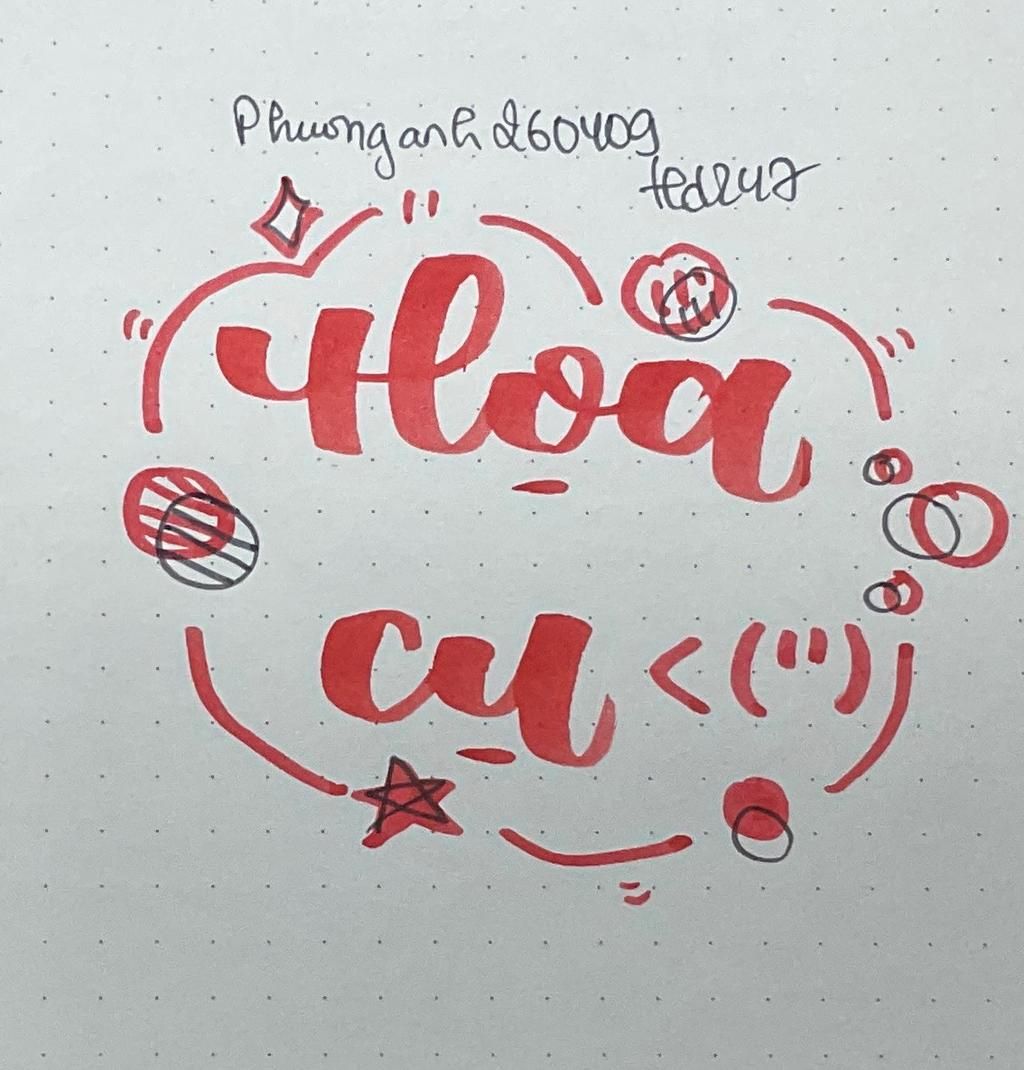 Phuonganh260409
ted247
Họa
cụ <(")